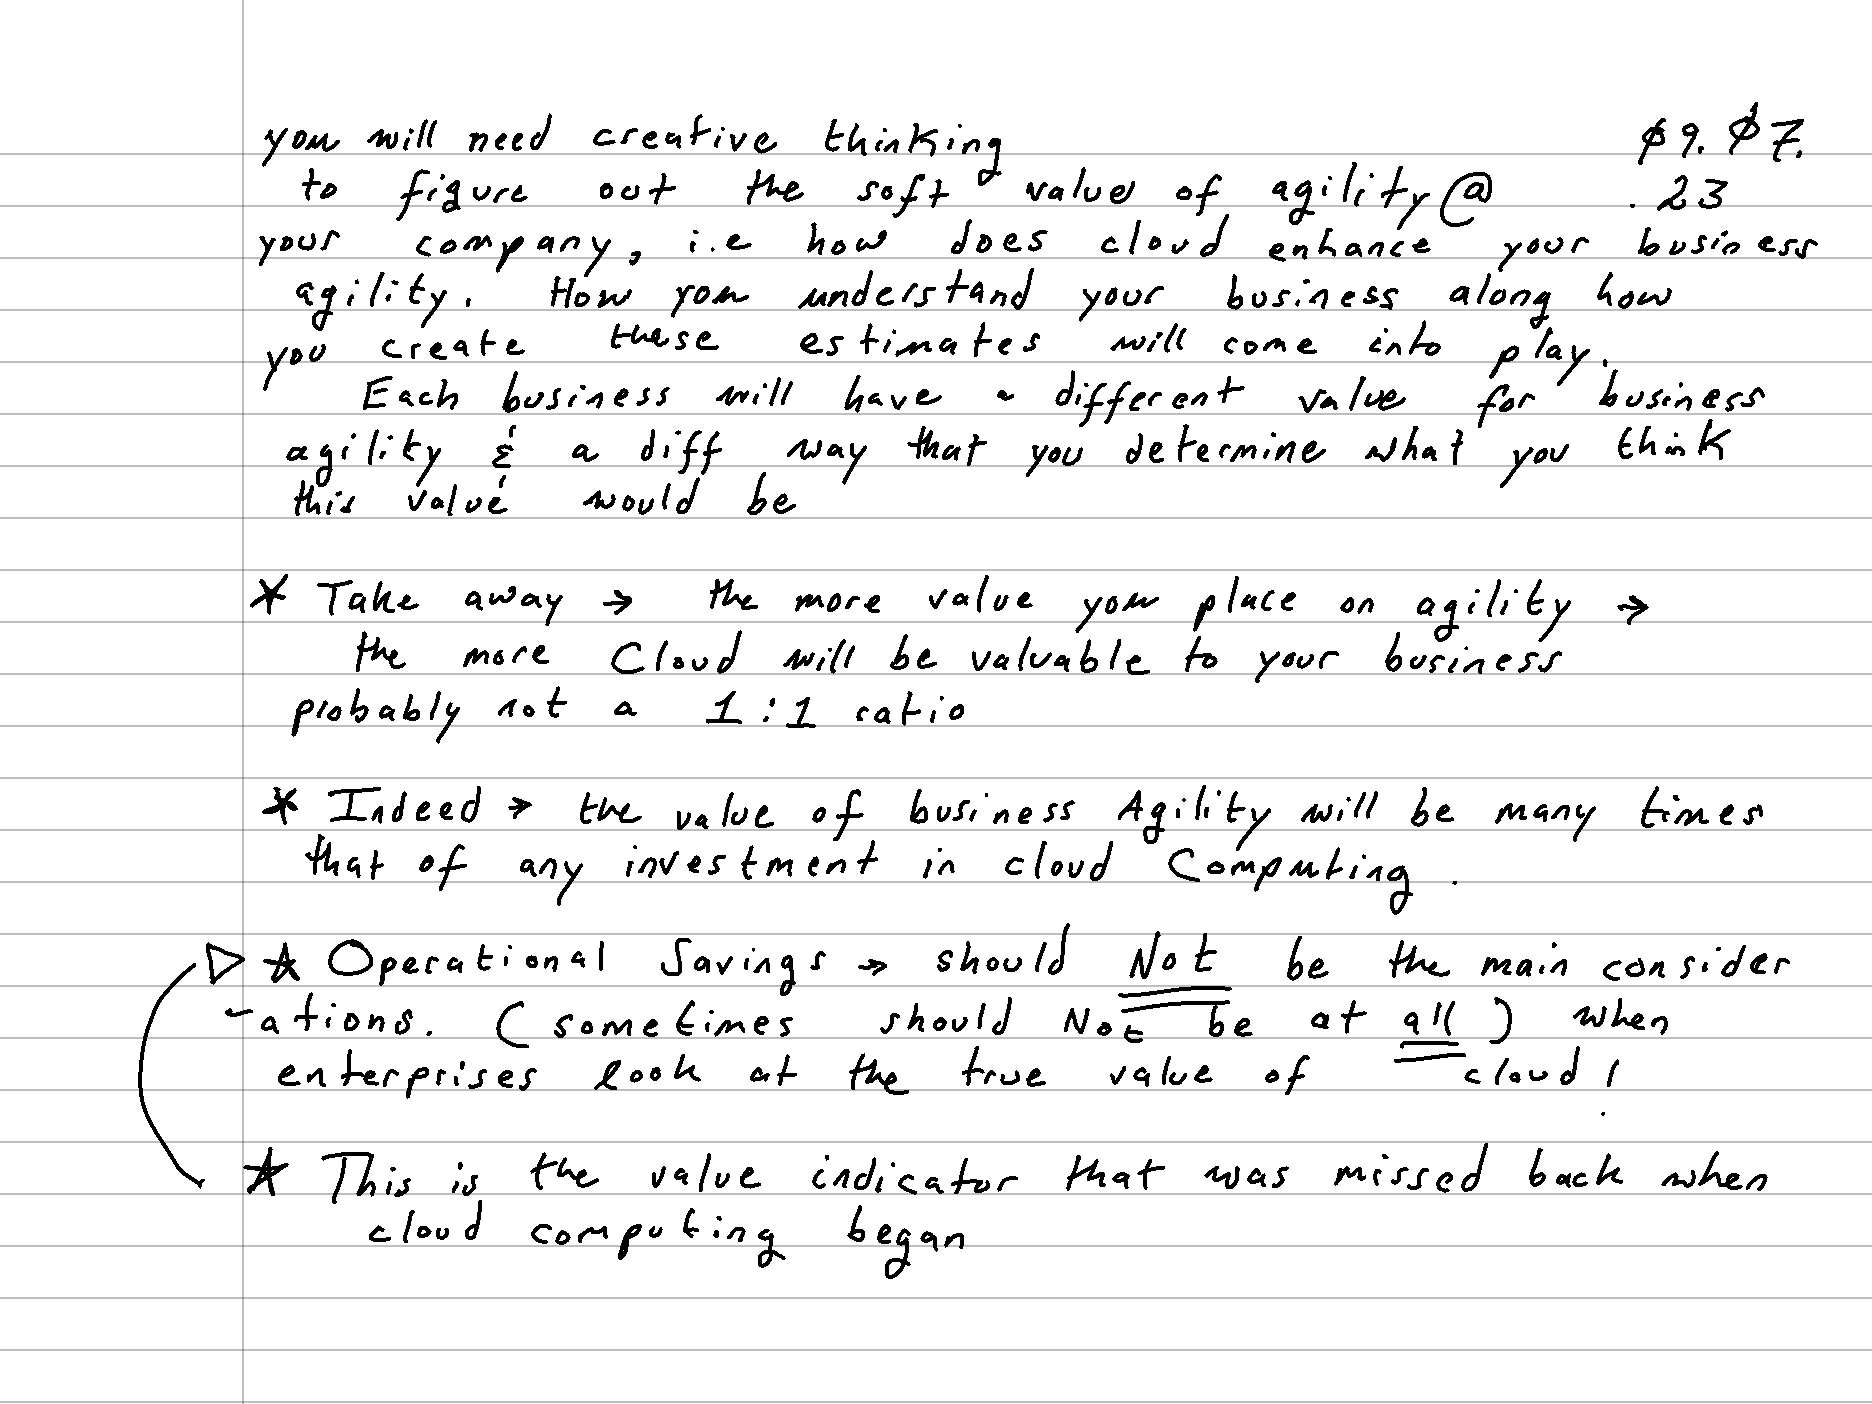 you will need creative thinking
to figure out the soft value of agility @
your company, i.e how does cloud enhance your business
agility. How you understand your business along how
you create these estimates will come into play.
Each business will have a different value for business
agility & a diff way that you determine what you think
this value would be
* Take away → the more value you place on agility →
the more Cloud will be valuable to your business
probably not a 1:1 ratio
* Indeed → the value of business Agility will be many times
that of any investment in cloud Computing.
★ Operational Savings → should Not be the main consider
-ations. (sometimes should Not be at all) when
enterprises look at the true value of cloud!
★ This is the value indicator that was missed back when
cloud computing began